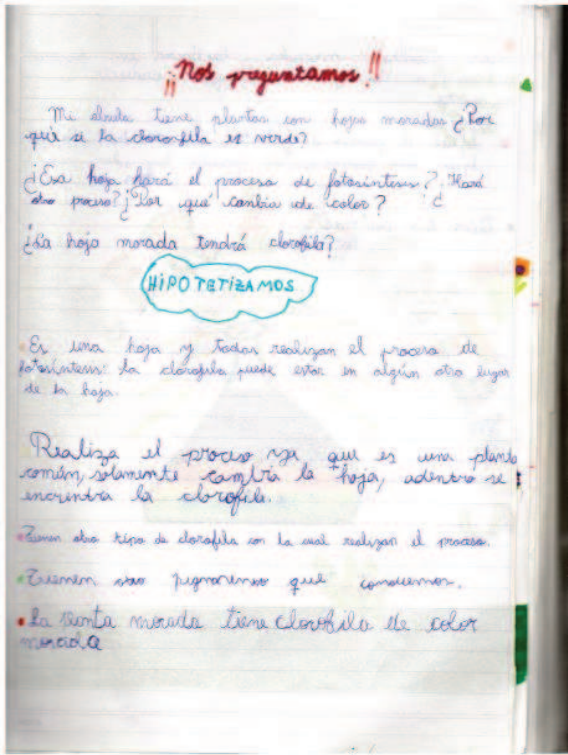 ¡¡Nos preguntamos!!
Mi abuela tiene plantas con hojas moradas ¿Por
qué si la clorofila es verde?
¿Esa hoja hará el proceso de fotosíntesis? ¿Hará
otro proceso? ¿Por qué cambia de color?
¿La hoja morada tendrá clorofila?
HiPOTETiZAMOS
Es una hoja y todas realizan el proceso de
fotosíntesis: la clorofila puede estar en algún otro lugar
de la hoja.
Realiza el proceso ya que es una planta
común, solamente cambia la hoja, adentro se
encuentra la clorofila.
Tienen otro tipo de clorofila con la cual realizan el proceso.
Tienen otro que
La morada tiene clorofila de color
morada